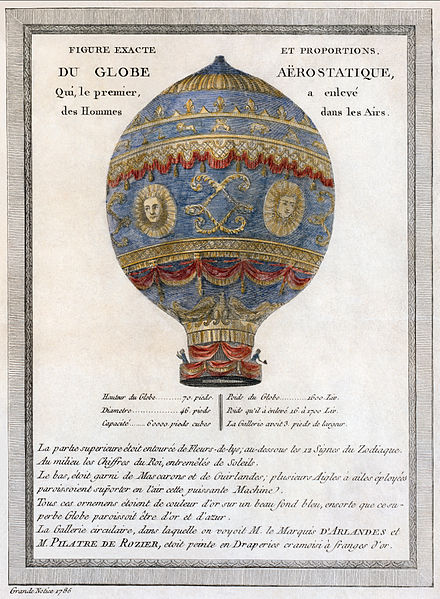 FIGURE EXACTE ET PROPORTIONS,
DU GLOBE AËROSTATIQUE,
Qui, le premier, a enlevé
des Hommes dans les Airs.
Hauteur du Globe..........70. pieds
Diametre................46. pieds
Capacité......60000 pieds cubes
Poids du Globe..........1600 Liv.
Poids qu'il a énlevé 16 à 1700 Liv.
La Gallerie avoit 3. pieds de largeur.
La partie superieure étoit entourée de Fleurs-de-lys, au-dessous les 12 Signes du Zodiaque.
Au milieu les Chiffres du Roi, entremêlés de Soleils.
Le bas, étoit garni de Mascarons et de Guirlandes; plusieurs Aigles à ailes éployées
paroissoient suporter en l'air cette puissante Machine).
Tous ces ornemens étoient de couleur d'or sur un beau fond bleu, ensorte que ce su-
perbe Globe paroissoit être d'or et d'azur.
La Gallerie circulaire, dans laquelle on voyoit M. le Marquis D'ARLANDES et
M. PILATRE DE ROZIER, étoit peinte en Draperies cramoisi à franges d'or.
Grande Notice 1786